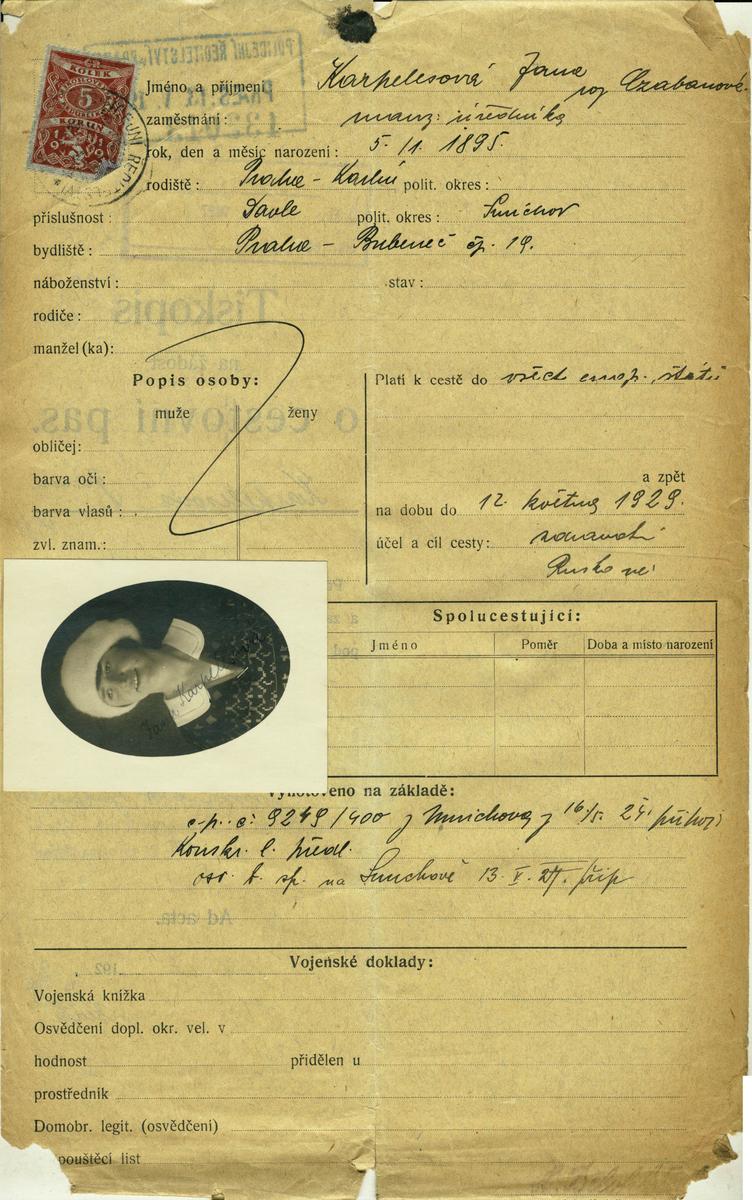 POLICEJNÍ ŘEDITELSTVÍ
ČR
KOLEK
5
KORUN
1919
Jméno a příjmení Karpelesová Jana roz Czabanové
zaměstnání: manž. úředníka
rok, den a měsíc narození: 5. /1. 1895.
rodiště: Praha - Karlín polit. okres:
příslušnost: Davle polit. okres: Smíchov
bydliště: Praha - Bubeneč čp. 19.
náboženství: stav:
rodiče:
manžel(ka):
Popis osoby:
muže ženy
obličej:
barva očí:
barva vlasů:
zvl. znam.:
Platí k cestě do všech europ. států
a zpět
na dobu do 12. května 1929.
účel a cíl cesty: zdravotní
Spolucestující:
Jméno Poměr Doba a místo narození
Jana Karpelesová
Vyhotoveno na základě:
c. p. č. 9249/400 z Smíchova z 16/5. 24.
Konskr. l. předl.
na Smíchově 13. V. 27.
Tiskopis
na žádost
o cestovní pas.
Ad acta.
192
Vojenské doklady:
Vojenská knížka
Osvědčení dopl. okr. vel. v
hodnost přidělen u
prostředník
Domobr. legit. (osvědčení)
pouštěcí list